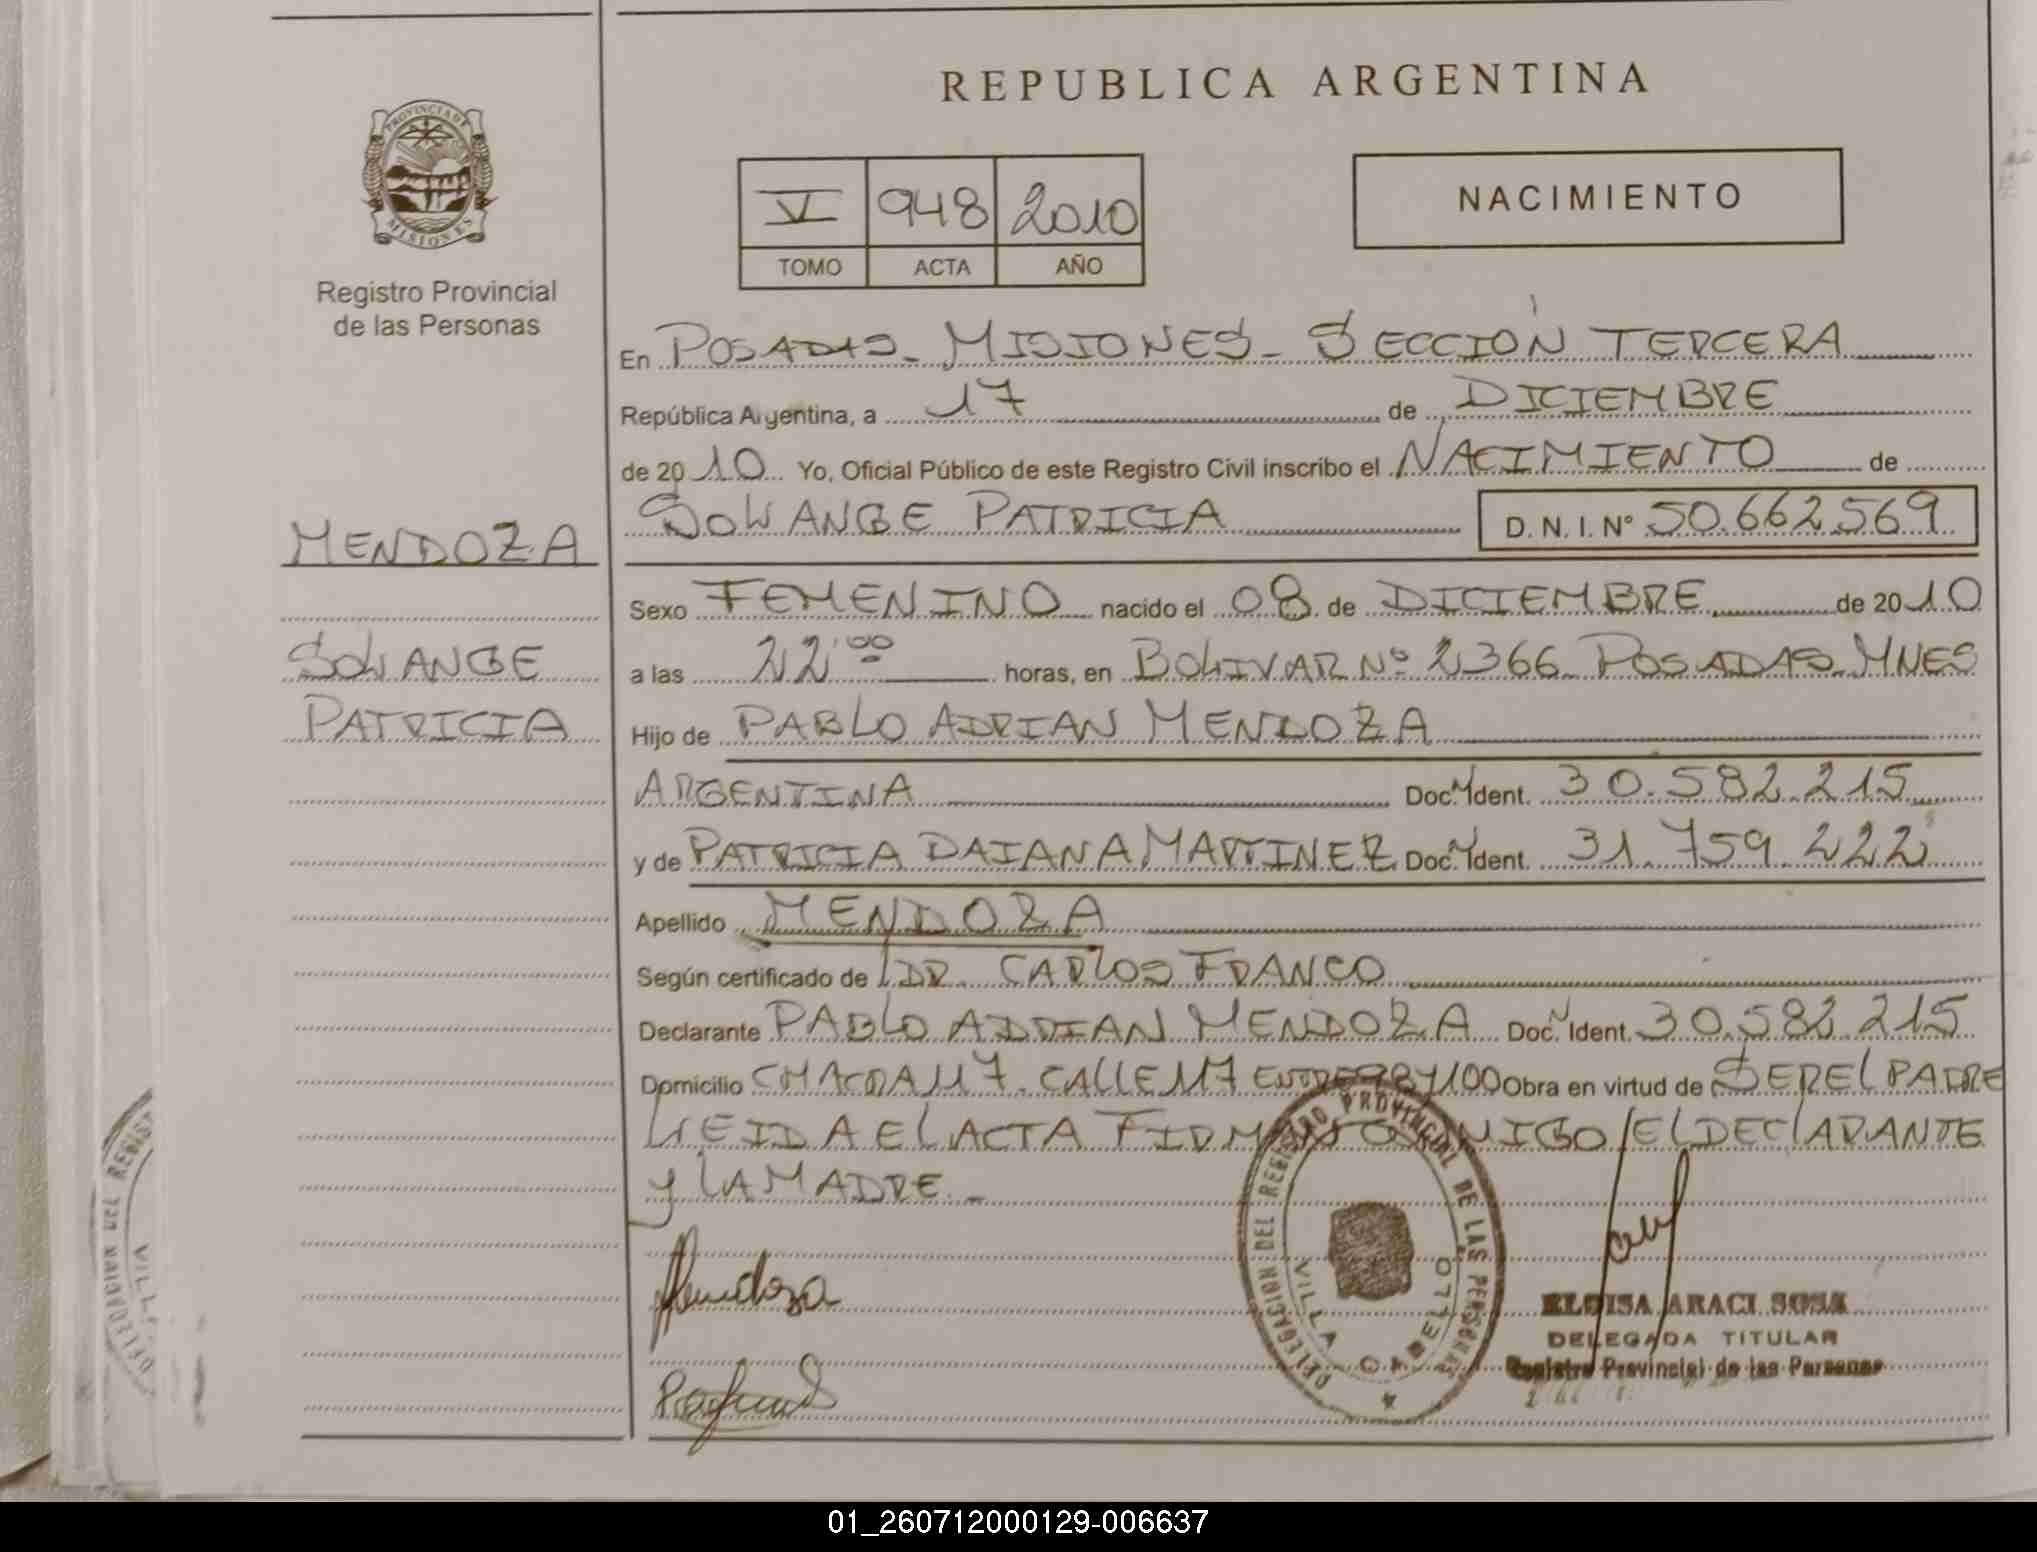 REPUBLICA ARGENTINA
PROVINCIA DE
MISIONES
Registro Provincial
de las Personas
V 948 2010
TOMO ACTA AÑO
NACIMIENTO
En POSADAS - MISIONES - SECCIÓN TERCERA
República Argentina, a 17 de DICIEMBRE
de 2010 Yo, Oficial Público de este Registro Civil inscribo el NACIMIENTO de
SOLANGE PATRICIA D. N. I. Nº 50.662.569
MENDOZA
SOLANGE
PATRICIA
Sexo FEMENINO nacido el 08 de DICIEMBRE de 2010
a las 22:00 horas, en BOLIVAR Nº 2366 POSADAS MNES
Hijo de PABLO ADRIAN MENDOZA
ARGENTINA Doc. Ident. 30.582.215
y de PATRICIA DAIANA MARTINEZ Doc. Ident. 31.759.222
Apellido MENDOZA
Según certificado de DR. CARLOS FRANCO
Declarante PABLO ADRIAN MENDOZA Doc. Ident. 30.582.215
Domicilio CHACRA 117. CALLE 117 ENTRE 98 Y 100 Obra en virtud de SER EL PADRE
LEIDA EL ACTA FIRMAN CONMIGO / EL DECLARANTE
Y LA MADRE. -
Mendoza
DELEGACION DEL REGISTRO PROVINCIAL DE LAS PERSONAS
VILLA CABELLO
ELOISA ARACI SOSA
DELEGADA TITULAR
Registro Provincial de las Personas
DELEGACION DEL REGIST
VILL
01_260712000129-006637